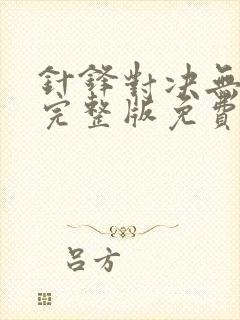 針鋒對决無
完整版免費
呂方